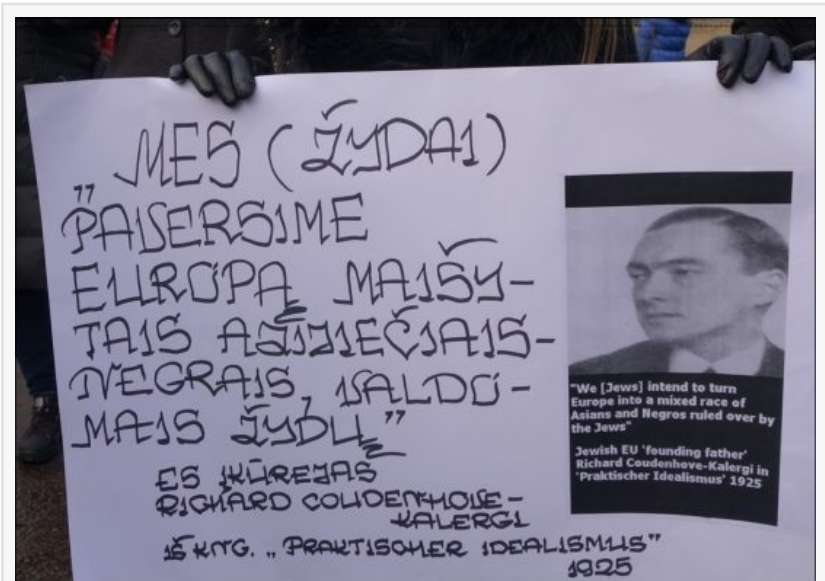 „MES (ŽYDAI)
PAVERSIME
EUROPĄ MAIŠY-
TAIS AZIJIEČIAIS-
NEGRAIS, VALDO-
MAIS ŽYDŲ”
ES ĮKŪRĖJAS
RICHARD COUDENHOVE-
KALERGI
IŠ KNG. „PRAKTISCHER IDEALISMUS”
1925
"We [Jews] intend to turn
Europe into a mixed race of
Asians and Negros ruled over by
the Jews"
Jewish EU 'founding father'
Richard Coudenhove-Kalergi in
'Praktischer Idealismus' 1925